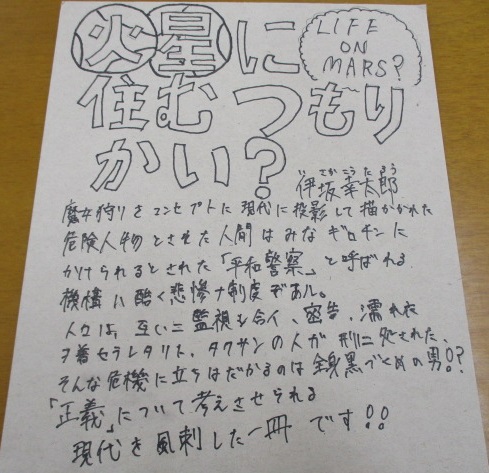 火星に
LIFE
ON
MARS?
住むつもり
かい?
いさかこうたろう
伊坂幸太郎
魔女狩りをコンセプトに現代に投影して描かれた
危険人物とされた人間はみなギロチンに
かけられるとされた「平和警察」と呼ばれる
機構に酷く悲惨ナ制度デアル。
人々は、互いニ監視し合イ、密告、濡れ衣
ヲ着セラレタリト、タクサンの人が刑ニ処された、
そんな危機に立ちはだかるのは全身黒づくめの男!?
「正義」について考えさせられる
現代を風刺した一冊です!!